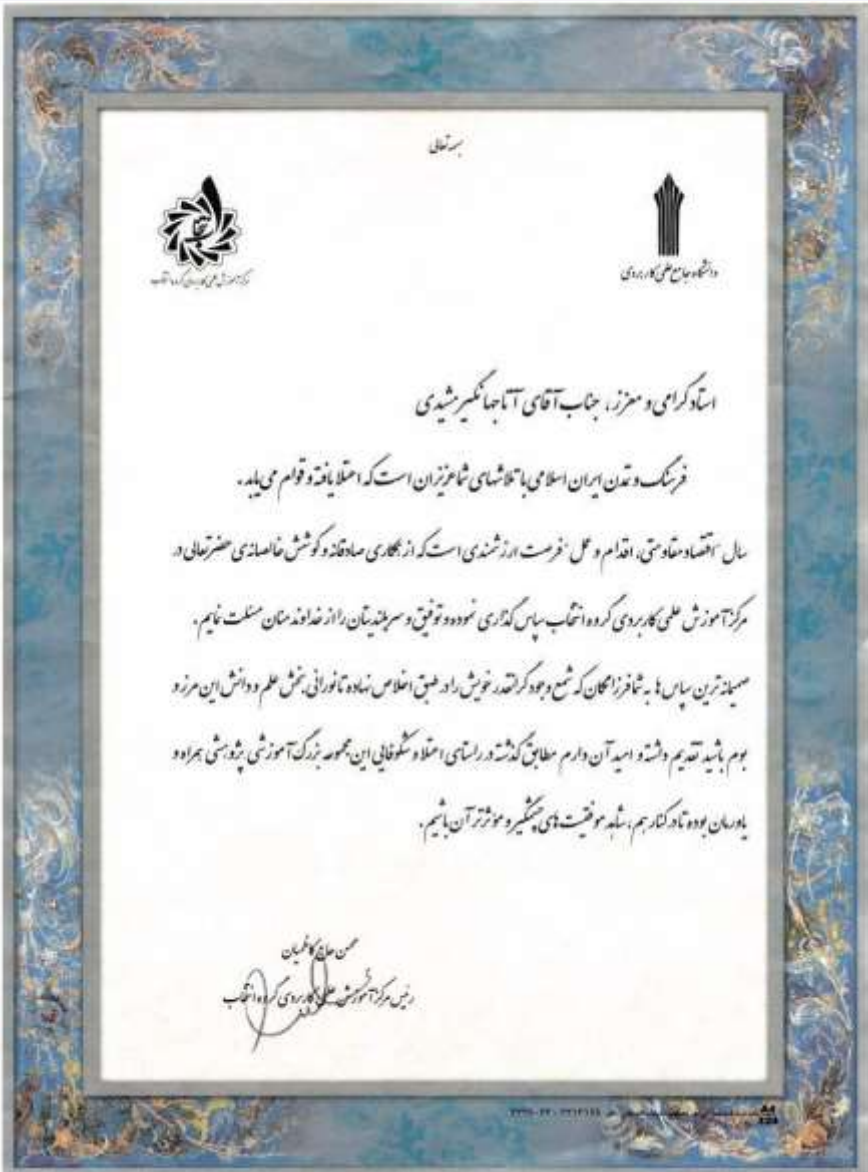 بسمه تعالی
دانشگاه جامع علمی کاربردی
مرکز آموزش علمی کاربردی گروه انتخاب
استاد گرامی و معزز، جناب آقای آتاجهانگیر مشیدی
فرهنگ و تمدن ایران اسلامی با تلاشهای شما عزیزان است که اعتلا یافته و قوام می یابد.
سال "اقتصاد مقاومتی، اقدام و عمل" فرصت ارزشمندی است که از همکاری صادقانه و کوشش خالصانه ی حضرتعالی در
مرکز آموزش علمی کاربردی گروه انتخاب سپاس گذاری نموده و توفیق و سربلندیتان را از خداوند منان مسئلت نمایم.
صمیمانه ترین سپاس ها به شما فرزانگان که شمع وجود گرانقدر خویش را در طبق اخلاص نهاده تا نورانی بخش علم و دانش این مرز و
بوم باشید تقدیم داشته و امید آن دارم مطابق گذشته در راستای اعتلا و شکوفائی این مجموعه بزرگ آموزشی پژوهشی همراه و
یاورمان بوده تا در کنار هم، شاهد موفقیت های چشمگیر و مؤثرتر آن باشیم.
محسن حاج کاظمیان
رئیس مرکز آموزش علمی کاربردی گروه انتخاب